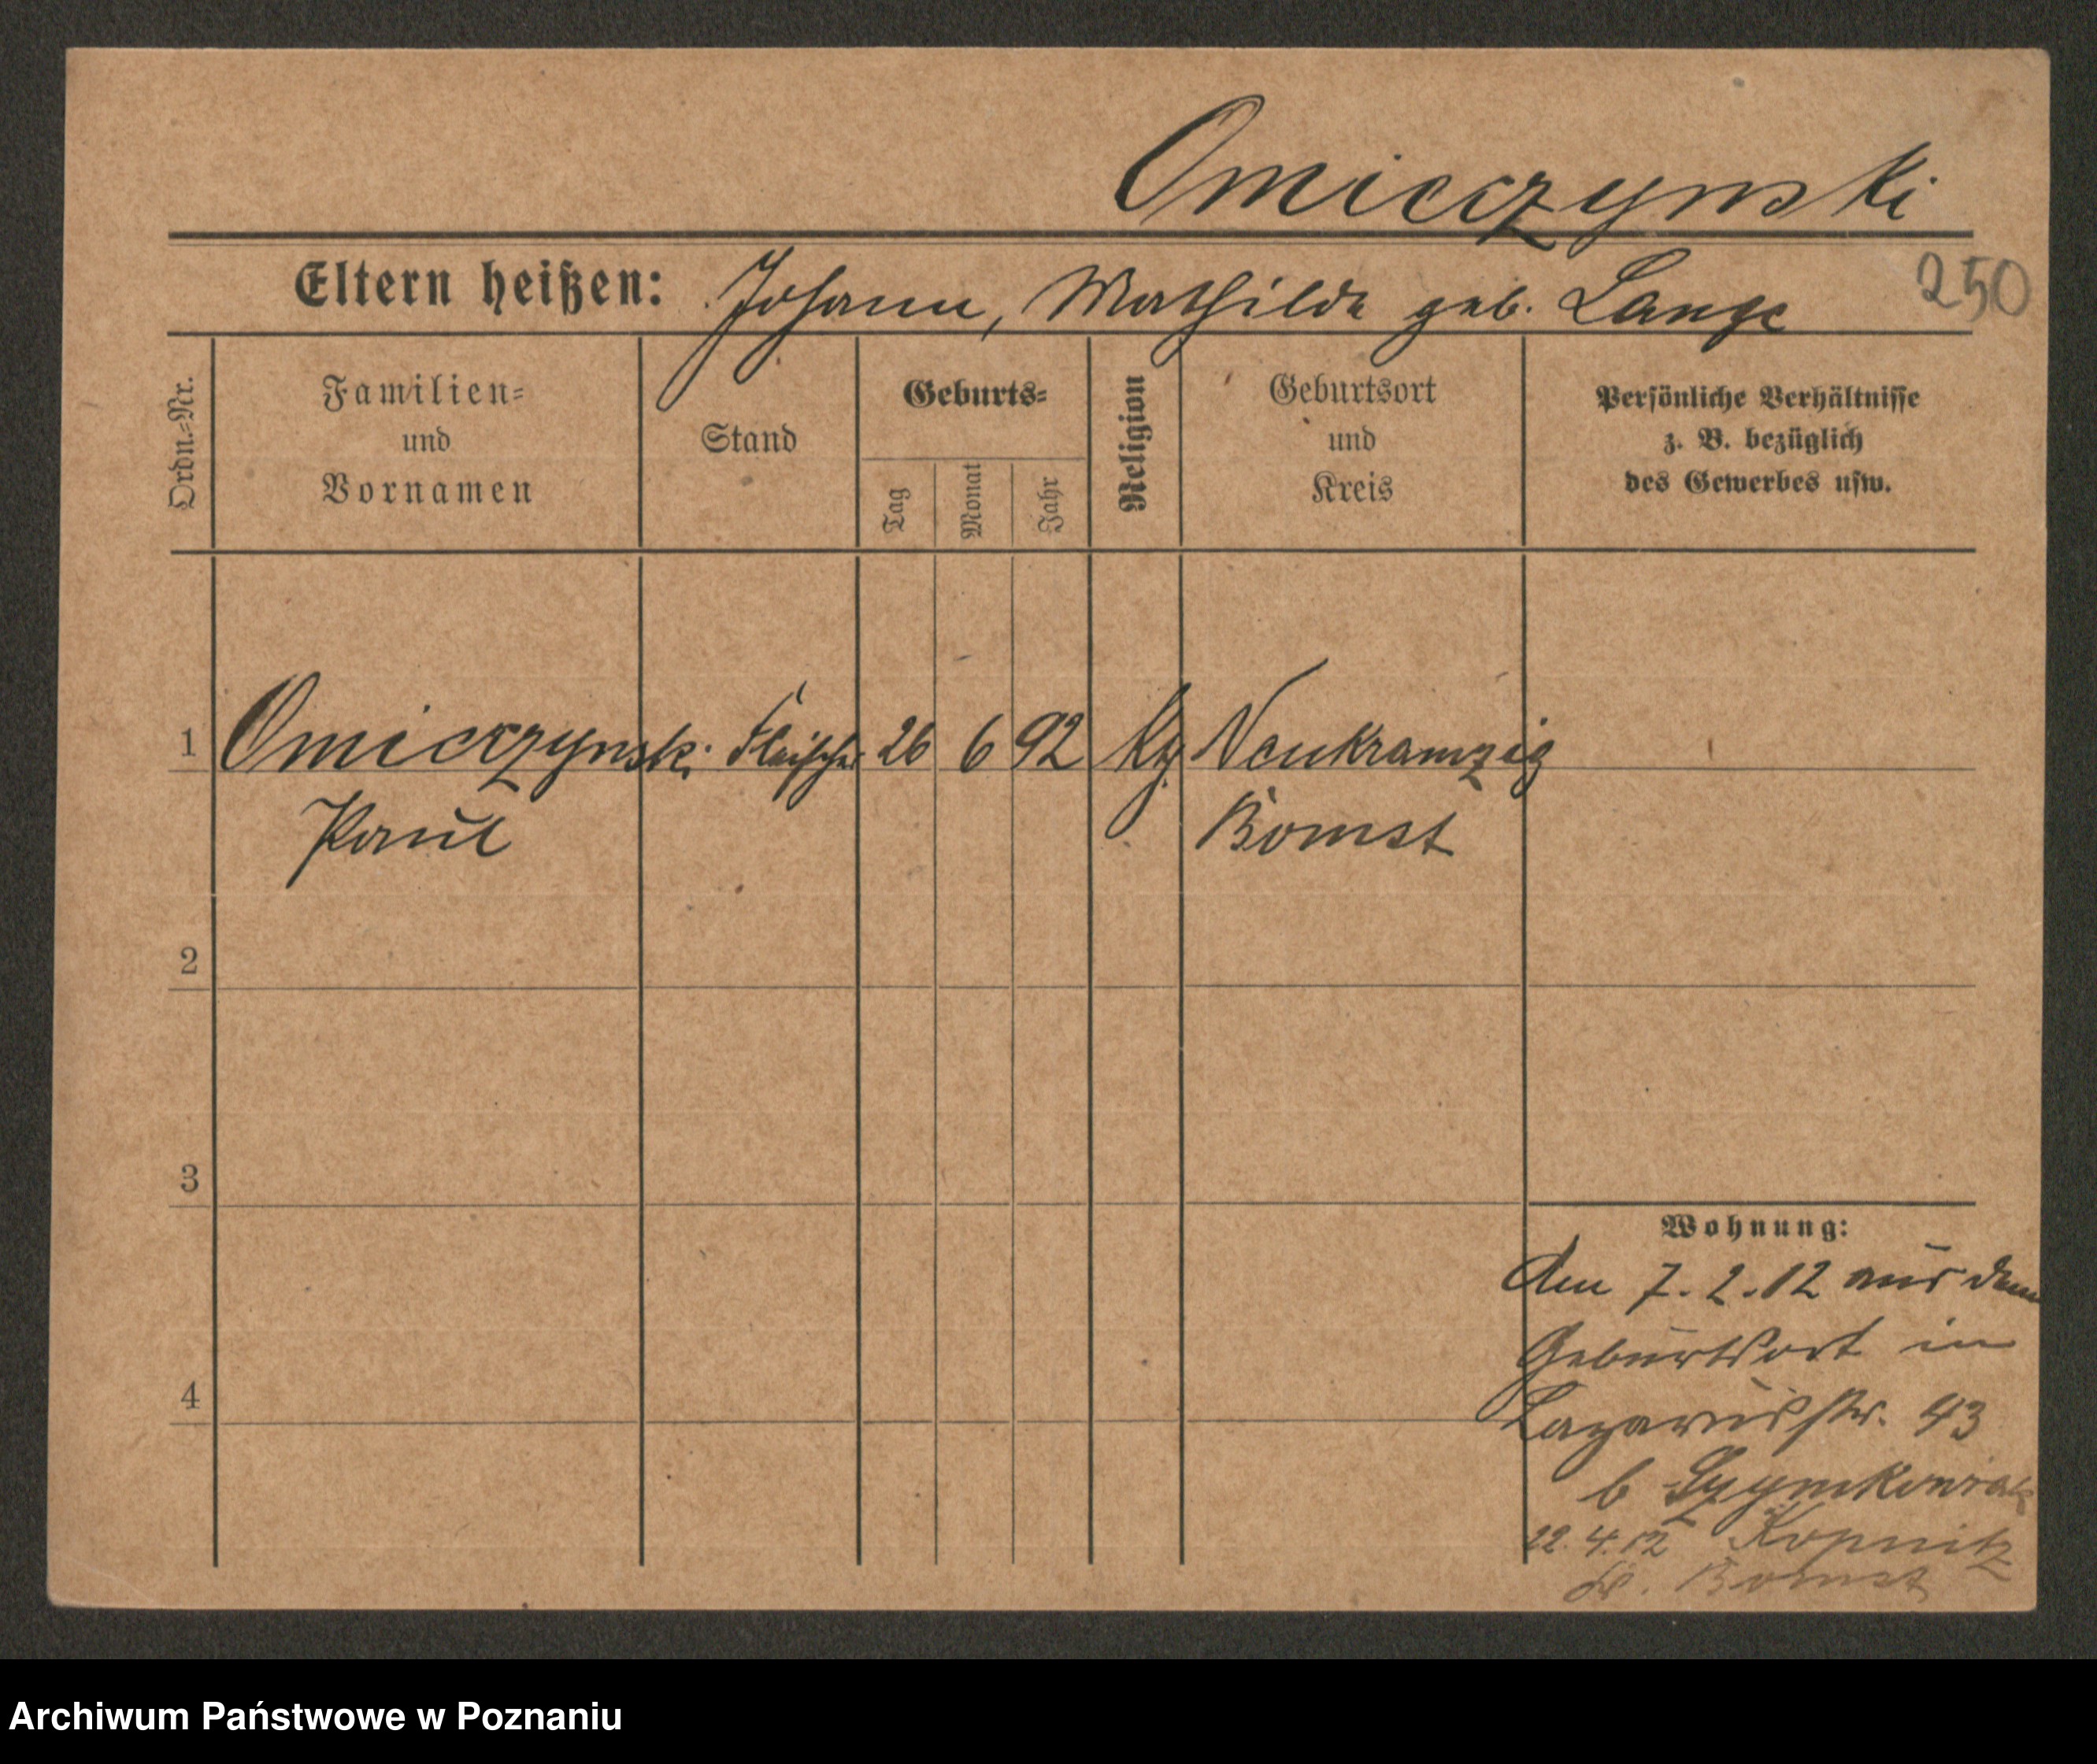 Omieczynski
250
Eltern heißen: Johann, Mathilde geb. Lange
Ordn.=Nr.
Familien=
und
Vornamen
Stand
Geburts=
Tag
Monat
Jahr
Religion
Geburtsort
und
Kreis
Persönliche Verhältnisse
z. B. bezüglich
des Gewerbes usw.
1 Omieczynski Fleischer 26 6 92 Neukramzig
Paul Bomst
2
3
4
Wohnung:
Am 7.2.12 aus dem
Geburtsort in
Lazarusstr. 43
b
22.4.12 Kopnitz
Kr. Bomst
Archiwum Państwowe w Poznaniu